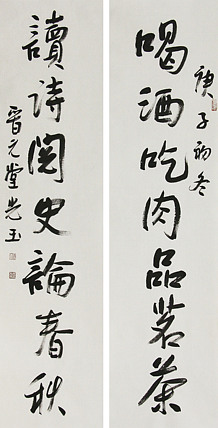 庚子初冬
喝酒吃肉品茗茶
讀詩閱史論春秋
晉元堂光玉